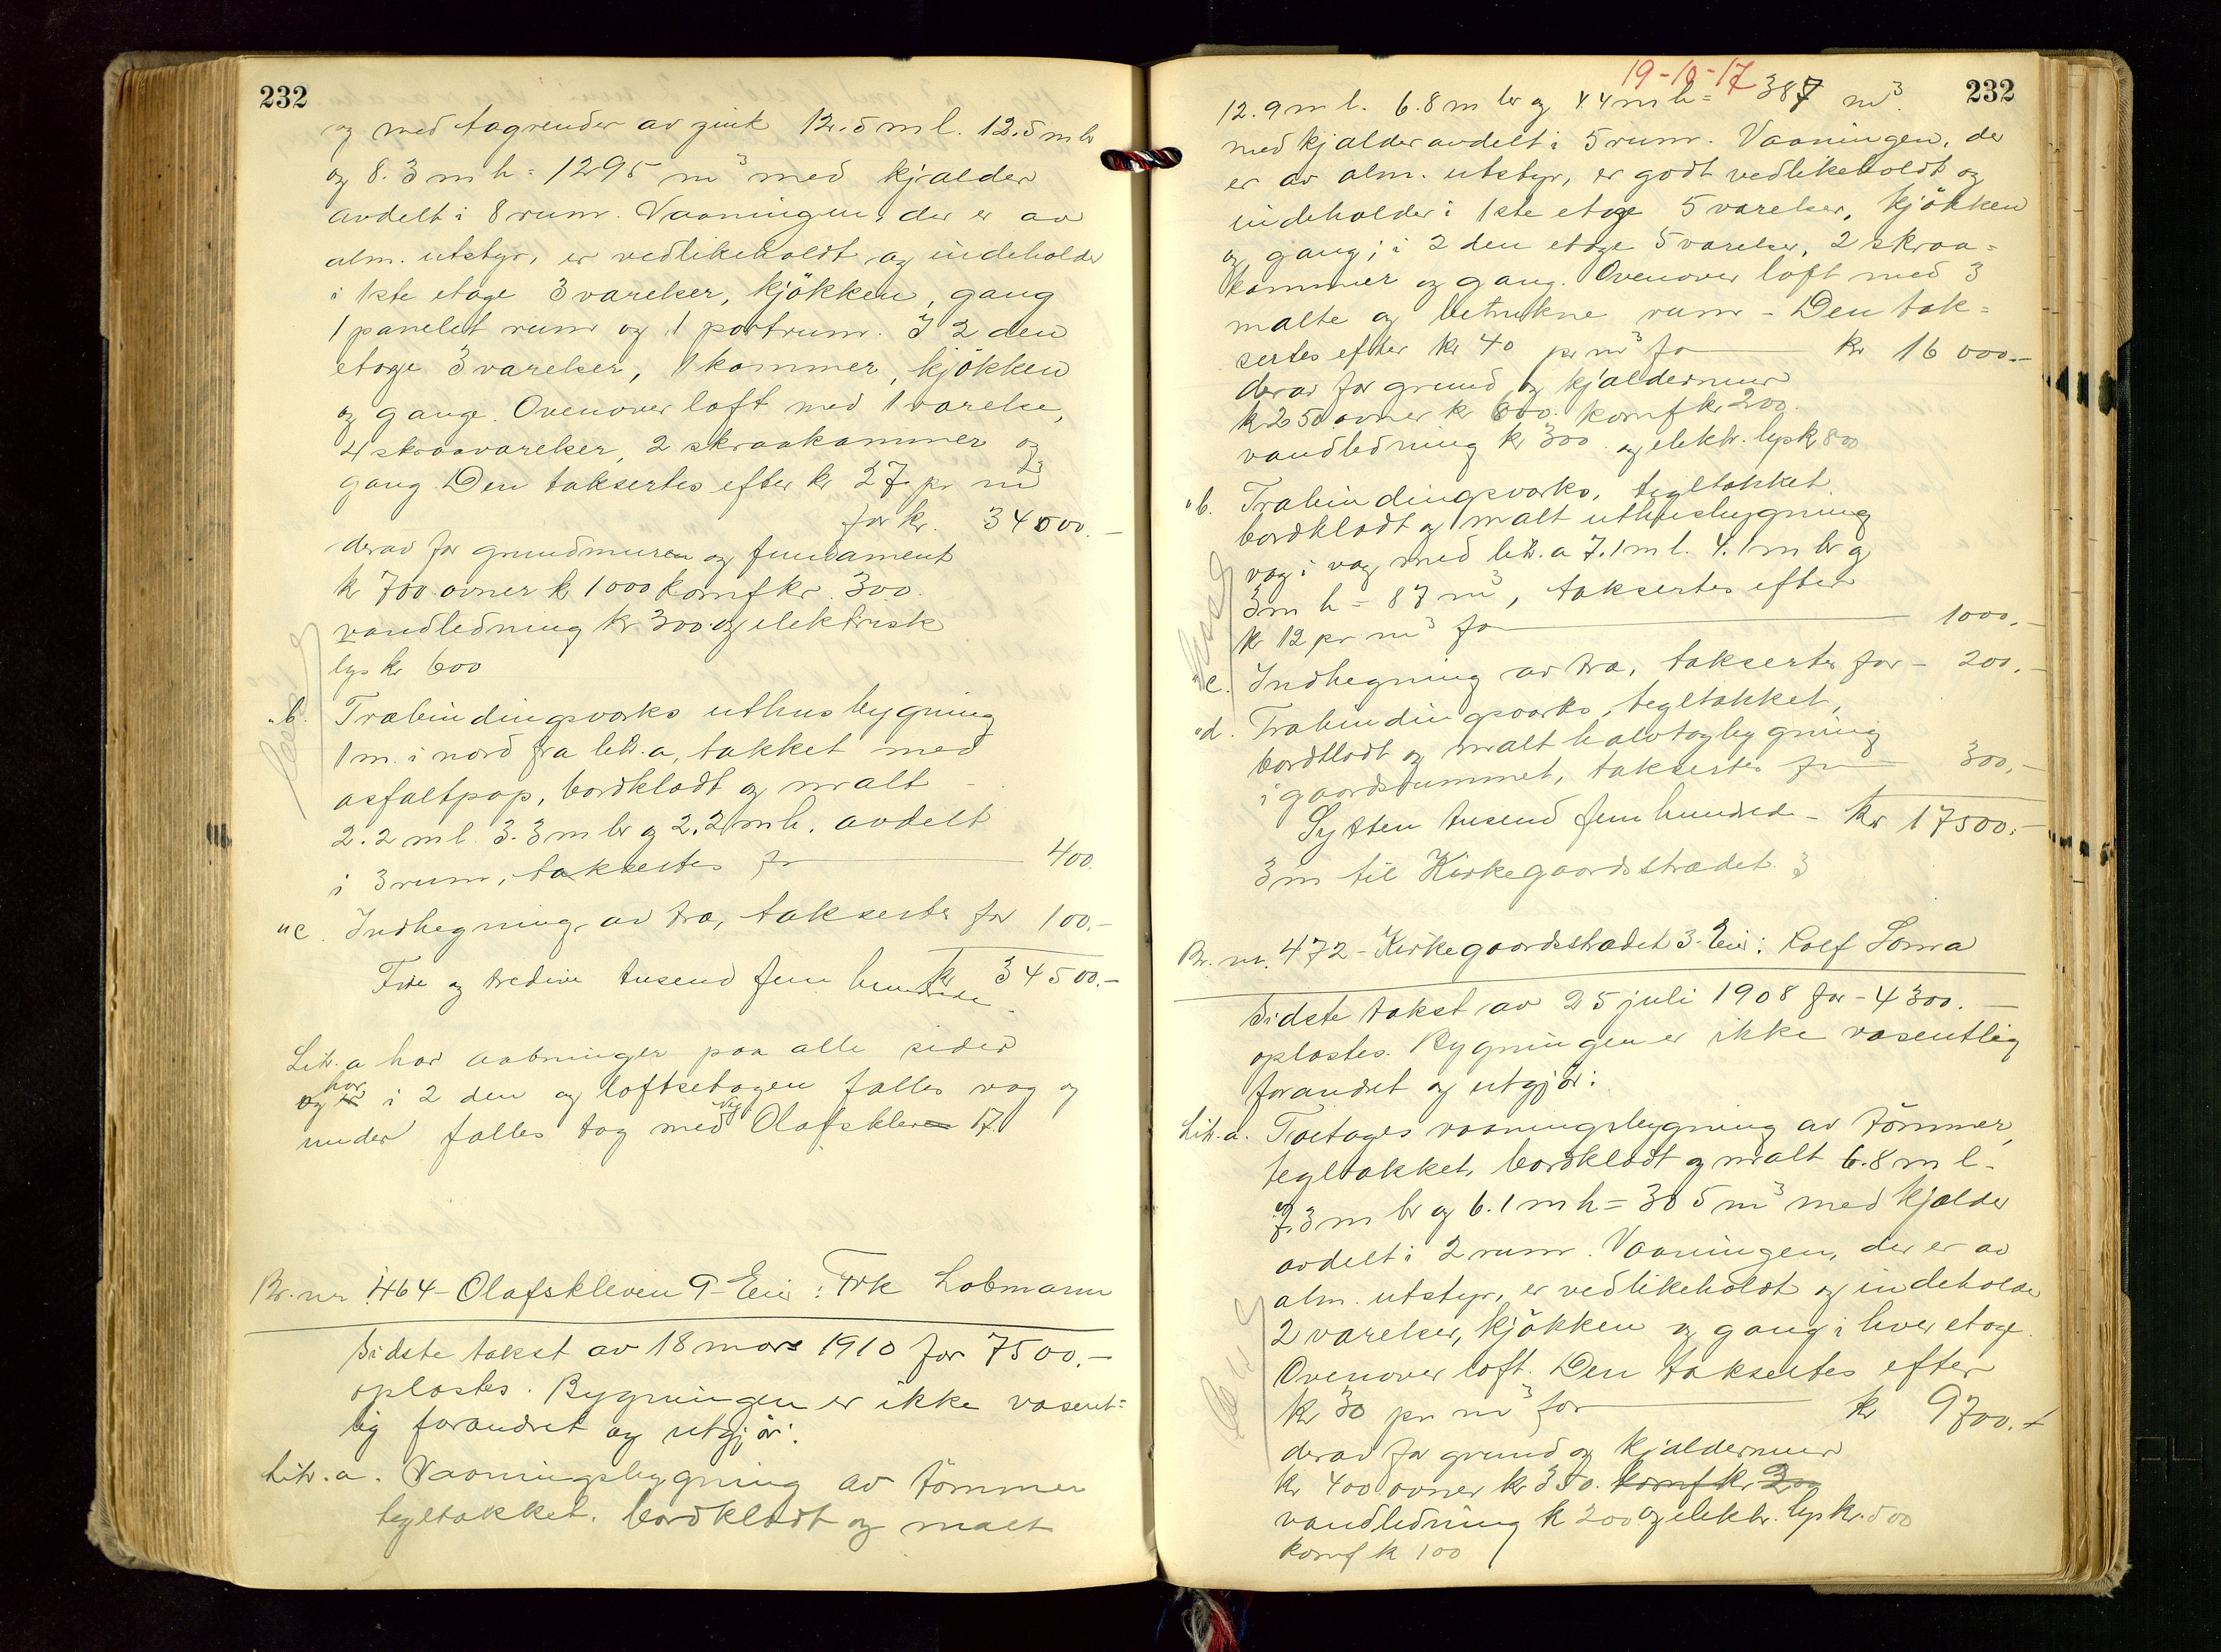 232
og med tagrender av zink 12.5 m l. 12.5 m br
og 8.3 m h = 1295 m³ med kjælder
avdelt i 8 rum. Vaaningen, der er av
alm. utstyr, er vedlikeholdt og indeholder
i 1ste etage 3 værelser, kjökken, gang
1 panelet rum og 1 portrum. I 2 den
etage 3 værelser, 1 kammer, kjökken
og gange. Ovenover loft med 1 værelse,
4 skraaværelser, 2 skraakammer og
gang. Den taksertes efter kr 27 pr m³
for kr. 34000.-
derav for grundmuren og fundament
kr 700 ovner kr 1000 komf kr. 300.
vandledning kr 300 og elektrisk
lys kr 600
"b. Træbindingsværks uthusbygning
1 m. i nord fra litr. a, tækket med
asfaltpap, bordklædt og malt
2.2 m l. 3.3 m br og 2.2 m h. avdelt
i 3 rum, taksertes for 400.
"c. Indhegning av træ, taksertes for 100.-
Fire og tredive tusend fem hundrede kr 34500.-
Litr. a har aabninger paa alle sider
og har i 2 den og loftsetagen fælles væg og
under fælles tag med No Olafsklev 17.
Br. nr 464 - Olafskleven 9 - Eier: Frk Lobmann
Sidste takst av 18 mars 1910 for 7500.-
oplæstes. Bygningen er ikke væsent=
lig forandret og utgjør:
Litr. a. Vaaningsbygning av tömmer
tegltækket, bordklædt og malt
19-10-17
232
12.9 m l. 6.8 m br og 4.4 m h = 387 m³.
med kjælder avdelt i 5 rum. Vaaningen, der
er av alm. utstyr, er godt vedlikeholdt og
indeholder i 1ste etage 5 værelser, kjökken
og gang; i 2 den etage 5 værelser, 2 skraa=
kammer og gang. Ovenover loft med 3
malte og betrukne rum - Den tak=
sertes efter kr 40 pr m³ for kr 16000.-
derav for grund og kjældermur
kr 250 ovner kr 800. komf kr 200.
vandledning kr 300 og elektr. lys kr 800
"b. Træbindingsværks, tegltækket
bordklædt og malt uthusbygning
væg i væg med litr. a 7.1 m l. 4.1 m br og
3 m h = 87 m³, taksertes efter
kr 12 pr m³ for 1000.-
"c. Indhegning av træ, taksertes for - 200.-
"d. Træbindingsværks, tegltækket,
bordklædt og malt halvtagbygning
i gaardsrummet, taksertes for 300.-
Sytten tusend fem hundred - kr 17500.-
3 m til Kirkegaardsstrædet 3
Br. nr. 472 - Kirkegaardsstrædet 3. Eier: Rolf Sömra
Sidste takst av 25 juli 1908 for - 4300.-
oplæstes. Bygningen er ikke væsentlig
forandret og utgjør:
Litr. a. Toetages vaaningsbygning av tömmer,
tegltækket, bordklædt og malt 6.8 m l.
7.3 m br og 6.1 m h = 305 m³ med kjælder
avdelt i 2 rum. Vaaningen, der er av
alm. utstyr, er vedlikeholdt og indeholder
2 værelser, kjökken og gang i hver etage.
Ovenover loft. Den taksertes efter
kr 30 pr m³ for kr 9700.-
derav for grund og kjældermur
kr 400 ovner kr 350. komf kr 200
vandledning kr 200 og elektr. lys kr. 500
komf kr 100